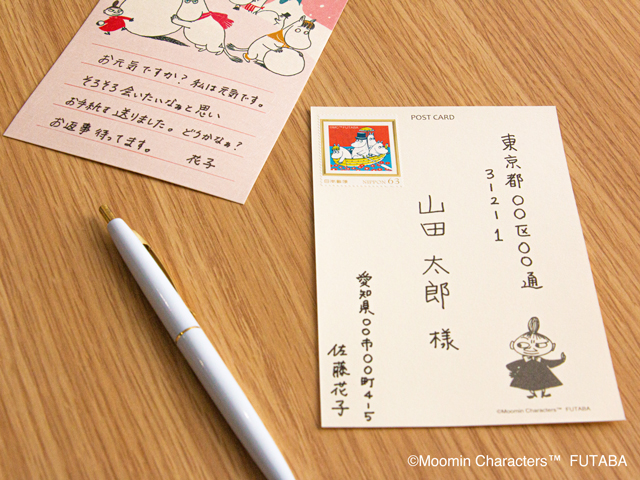 お元気ですか？私は元気です。
そろそろ会いたいなぁと思い
お手紙を送りました。どうかなぁ？
お返事待ってます。
花子
POST CARD
63
東京都〇〇区〇〇通
3-2-1
山田太郎様
愛知県〇〇市〇〇町4-5
佐藤花子
©Moomin Characters™ FUTABA
©Moomin Characters™ FUTABA